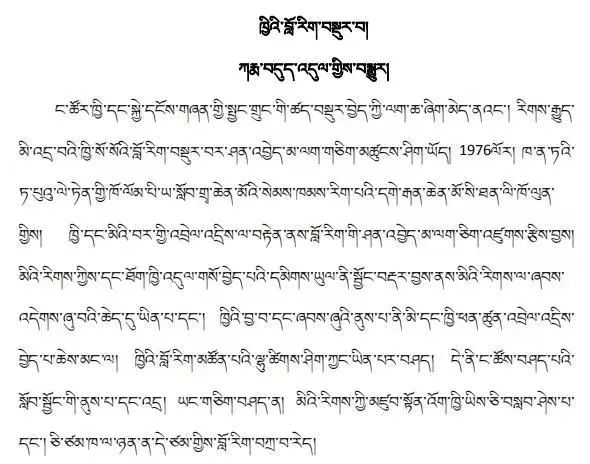 ཁྱིའི་བློ་རིག་བསྡུར་བ།
ཀརྨ་བདུད་འདུལ་གྱིས་བསྒྱུར།
ང་ཚོར་ཁྱི་དང་སྐྱེ་དངོས་གཞན་གྱི་སྤྱང་གྲུང་གི་ཚད་བསྡུར་བྱེད་ཀྱི་ལག་ཆ་ཞིག་མེད་ནའང་། རིགས་རྒྱུད་
མི་འདྲ་བའི་ཁྱི་སོ་སོའི་བློ་རིག་བསྡུར་བར་ཤན་འབྱེད་མ་ལག་གཅིག་མཚུངས་ཤིག་ཡོད། 1976ལོར། ཁ་ན་ཏའི་
ཏ་པུའུ་ལེ་ཏེན་གྱི་ཁོ་ལོམ་པི་ཡ་སློབ་གྲྭ་ཆེན་མོའི་སེམས་ཁམས་རིག་པའི་དགེ་རྒན་ཆེན་མོ་སི་ཐན་ལི་ཁོ་ལུན་
གྱིས། ཁྱི་དང་མིའི་བར་གྱི་འབྲེལ་འདྲིས་ལ་བརྟེན་ནས་བློ་རིག་གི་ཤན་འབྱེད་མ་ལག་ཅིག་འཛུགས་རྩིས་བྱས།
མིའི་རིགས་ཀྱིས་དང་ཐོག་ཁྱི་འདུལ་གསོ་བྱེད་པའི་དམིགས་ཡུལ་ནི་སྦྱོང་བརྡར་བྱས་ནས་མིའི་རིགས་ལ་ཞབས་
འདེགས་ཞུ་བའི་ཆེད་དུ་ཡིན་པ་དང་། ཁྱིའི་བྱ་བ་དང་ཞབས་ཞུའི་ནུས་པ་ནི་མི་དང་ཁྱི་ཕན་ཚུན་འབྲེལ་འདྲིས་
བྱེད་པ་ཆེས་མང་ལ། ཁྱིའི་བློ་རིག་མཚོན་པའི་ལྷུ་ཚིགས་ཤིག་ཀྱང་ཡིན་པར་བཤད། དེ་ནི་ང་ཚོས་བཤད་པའི་
སློབ་སྦྱོང་གི་ནུས་པ་དང་འདྲ། ཡང་གཅིག་བཤད་ན། མིའི་རིགས་ཀྱི་མཛུབ་སྟོན་འོག་ཁྱི་ཡིས་ཅི་བསླབ་ཤེས་པ་
དང་། ཅི་ཙམ་ཁ་ལ་ཉན་ན་དེ་ཙམ་གྱིས་བློ་རིག་བཀྲ་བ་རེད།